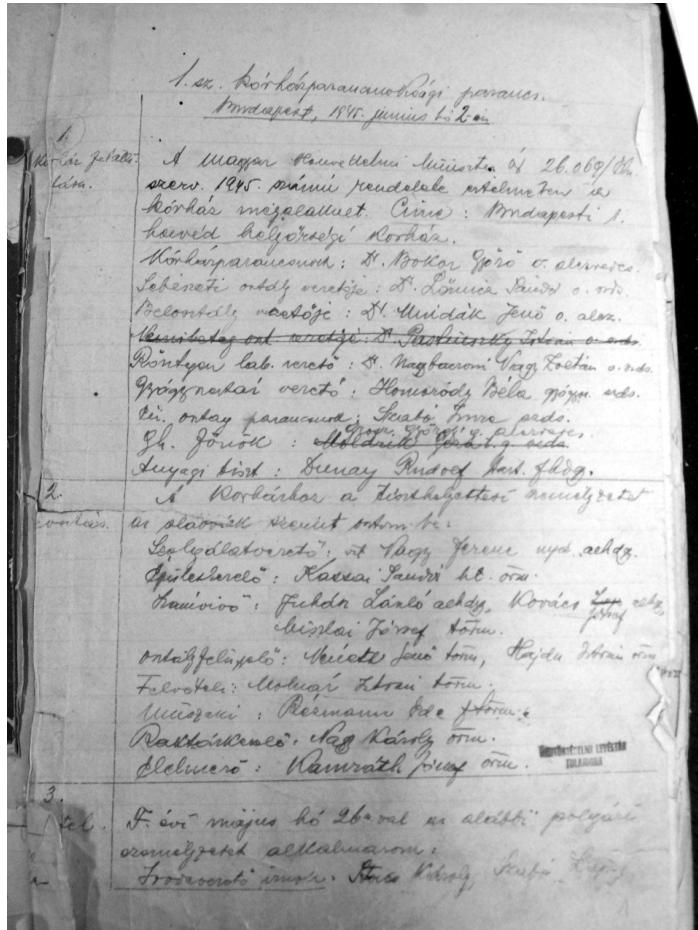 1. sz. kórházparancsnoksági parancs.
Budapest, 1945. június hó 2-án
1.
Kórház felállítása.
A Magyar Honvédelmi Miniszter úr 26.069/
szerv. 1945. számú rendelete értelmében a
kórház megalakult. Címe: Budapesti 1.
honvéd helyőrségi kórház.
Kórházparancsnok: Dr. Bokor Győző o. alezredes.
Sebészeti osztály vezetője: Dr. Sándor o. szds.
Belosztály vezetője: Dr. Mindák Jenő o. alez.
vezetője Dr. István o. szds.
Röntgen lab. vezető: Dr. Nagybaconi Nagy Zoltán o. szds.
Gyógyszertár vezető: Homoródy Béla gyógysz. szds.
Eü. osztag parancsnok: Szabó Imre szds.
György g. alezredes.
Gh. Főnök:
Anyagi tiszt: Dunay Rudolf fhdgy.
2.
A kórházhoz a tiszthelyettesi személyzetet
az alábbiak szerint osztom be:
Szolgálatvezető: vit. Nagy Ferenc nyá. alhdgy.
Épületkezelő: Kassai Sándor ht. őrm.
Számvivő: Juhász László alhdgy, Kovács József alhdgy,
Miszlai József törm.
Osztályfelügyelő: Németh Jenő törm, Hajdu István őrm
Felvételi: Molnár István törm.
Műszaki: Rezmann Ede törm.
Raktárkezelő: Nagy Károly őrm.
Élelmező: Kamráth József őrm.
HADTÖRTÉNELMI LEVÉLTÁR
3.
F. évi május hó 26-ával az alábbi polgári
személyzetet alkalmazom:
Irodavezető írnok: Károly, Szabó